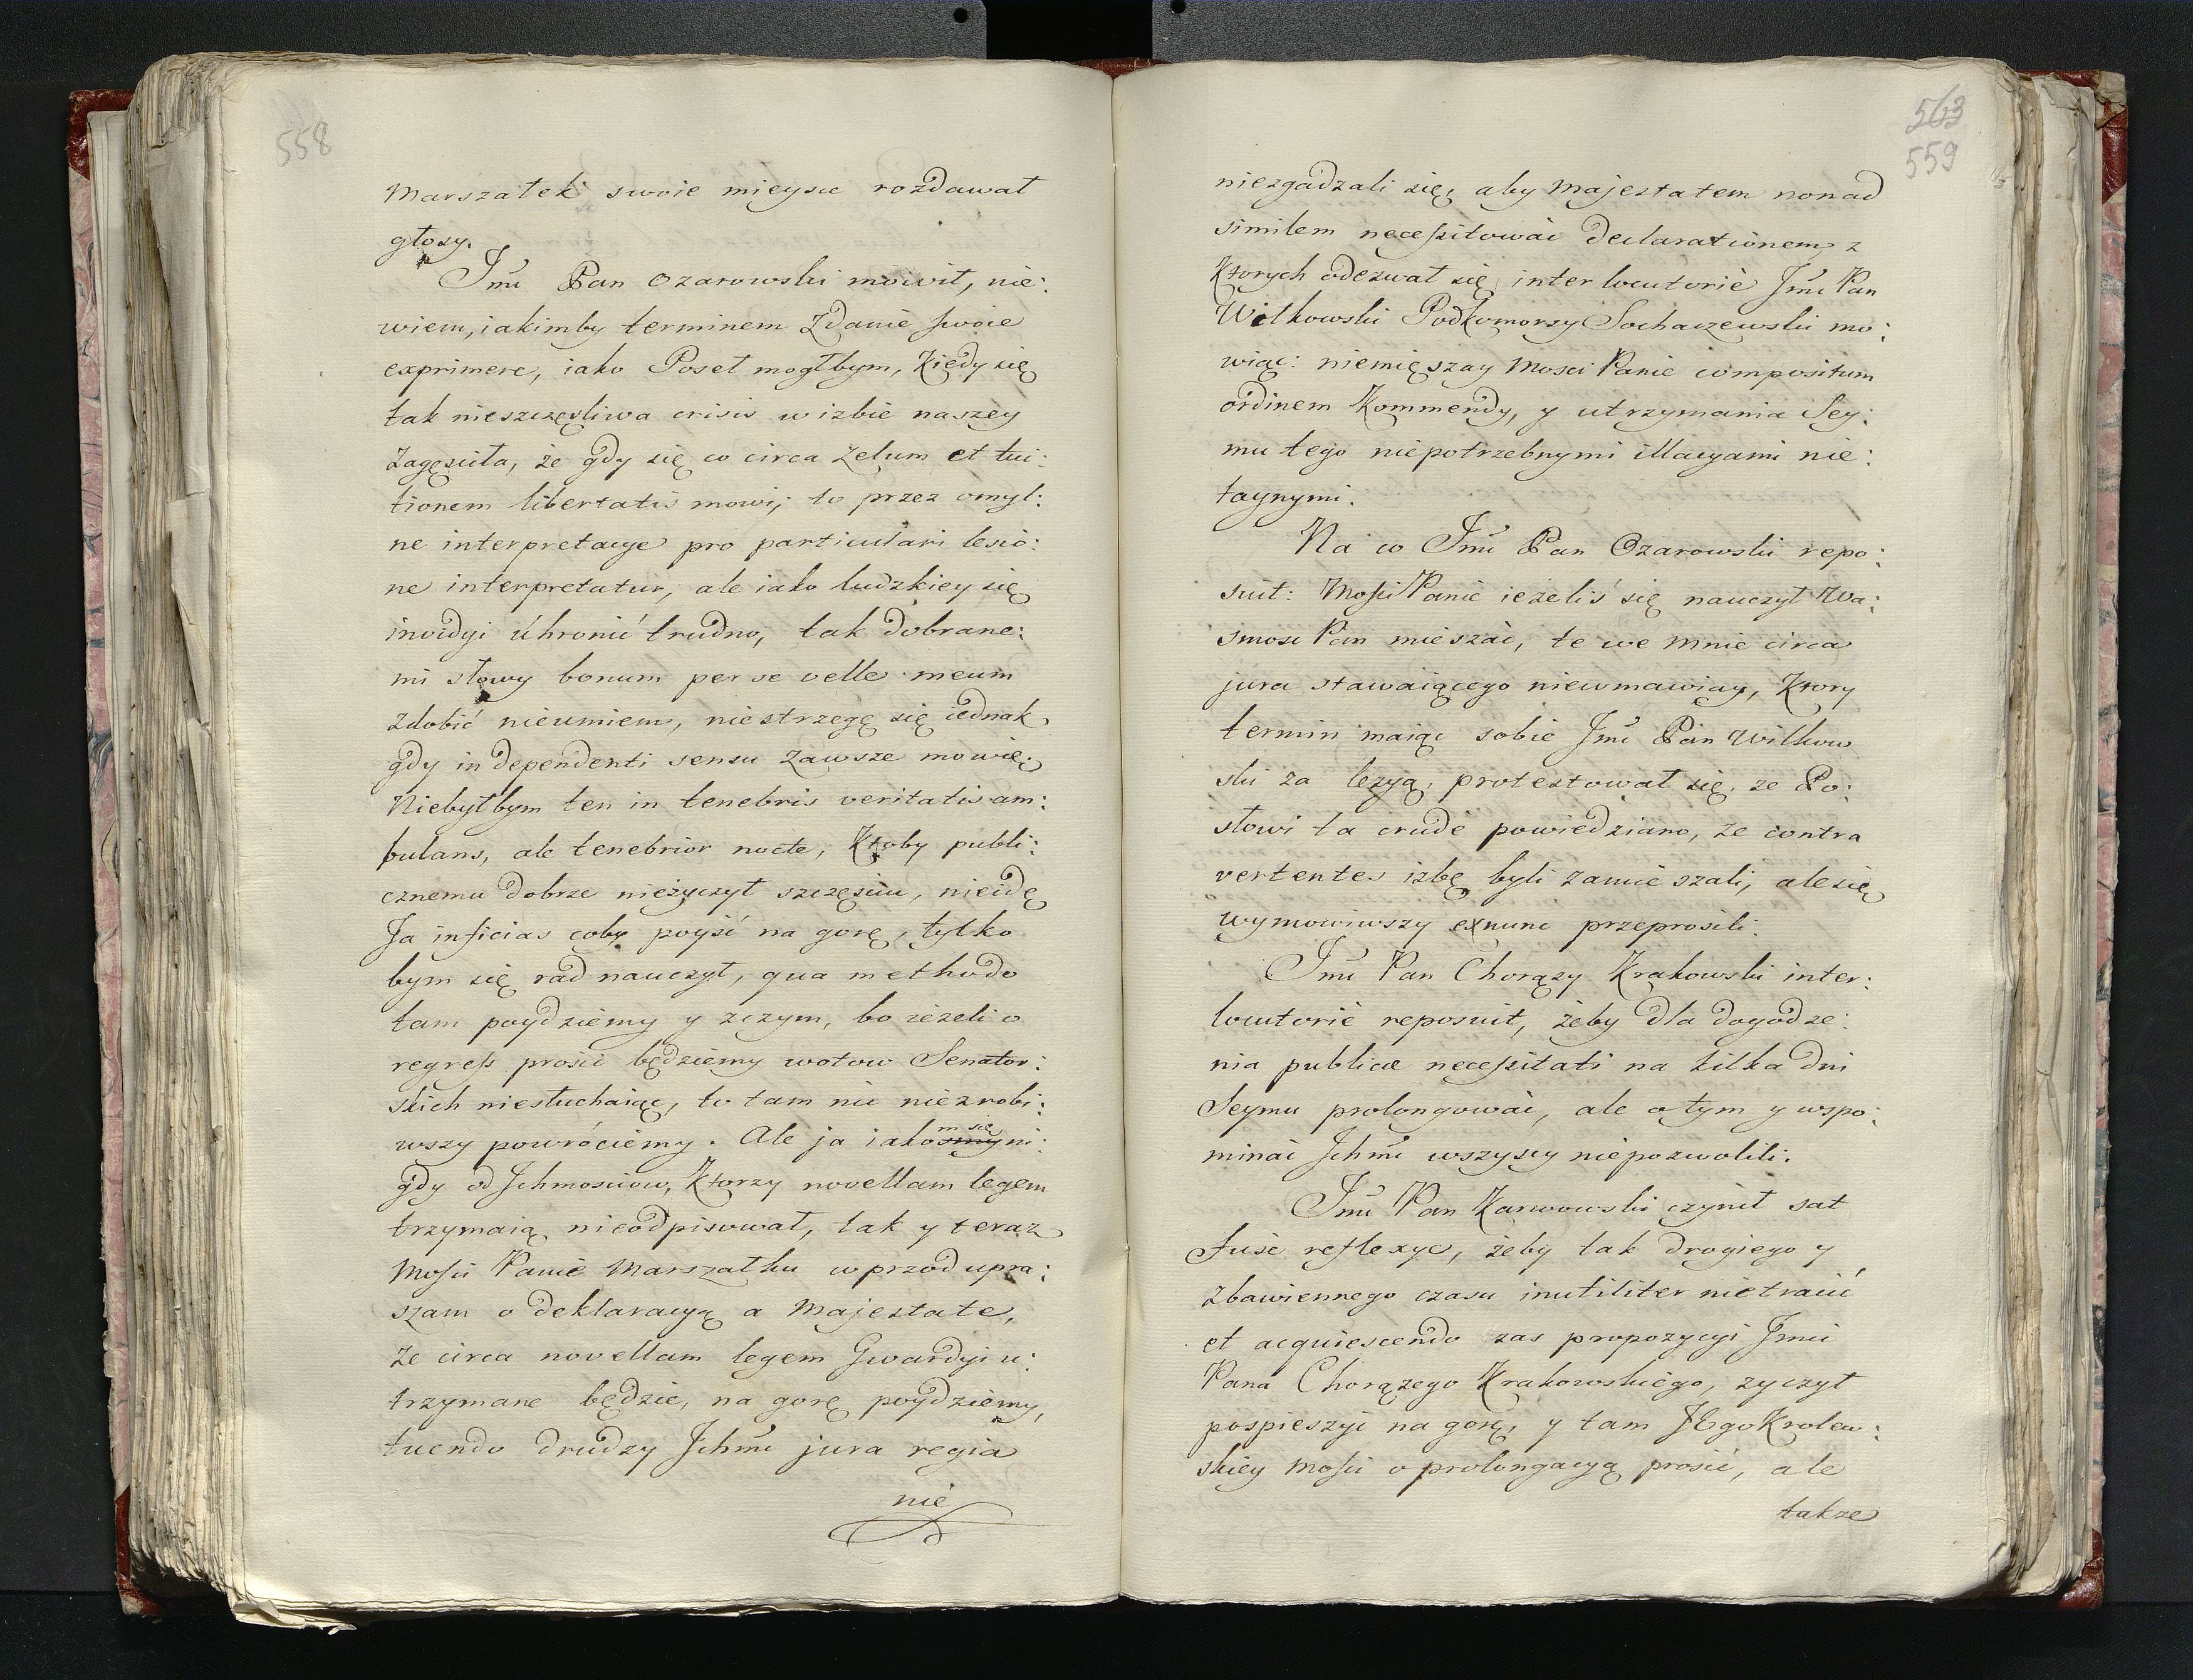 558
Marszałek swoie mieysce rozdawał
głosy.
Jmć Pan Ozarowski mówił, nie:
wiem, iakimby terminem Zdanie swoie
exprimere, iako Poseł mogłbym, Kiedy się
tak nieszczęsliwa crisis w izbie naszey
Zagęsciła, że gdy się co circa Zelum et tui:
tionem libertatis mowi, to przez omyl:
ne interpretacye pro particulari lesio:
ne interpretatur, ale iako ludzkiey się
inwidyi úhronić trudno, tak dobrane:
mi słowy bonum per se velle meum
zdobić nieumiem, niestrzegę się iednak
gdy independenti sensu Zawsze mowię.
Niebyłbym ten in tenebris veritatis am:
bulans, ale tenebrior nocte, Ktoby publi:
cznemu dobrze nieżyczył szczęsciu, nieidę
Ja inficias coby poyść na gorę, tylko
bym się rad nauczył, qua methodo
tam poydziemy y zczym, bo ieżeli o
regress prosić będziemy wotow Senator:
skich niesłuchaiąc, to tam nic niezrobi:
wszy powróciemy. Ale ja iakom się ni:
gdy od Ichmosciow, Ktorzy novellam legem
trzymaią nieodpisował, tak y teraz
Mości Panie Marszałku wprzod upra:
szam o deklaracyą a Majestate,
że circa novellam legem Gwardyi u:
trzymane będzie, na gorę poydziemy,
tuendo drudzy Ichmć jura regia
nie
563
559
niezgadzali się, aby Majestatem nonad
similem necessitować declarationem, z
Ktorych odezwał się interlocutorie Jmć Pan
Wilkowski Podkomorzy Sochaczewski mo:
wiąc: niemięszay Mosci Panie compositum
ordinem Kommendy, y utrzymania Sey:
mu tego niepotrzebnymi illacyami nie:
taynymi.
Na co Jmć Pan Ozarowski repo:
suit: Mości Panie ieżeliś się nauczył Wa:
smosc Pan mieszać, te we mnie circa
jura stawaiącego niewmawiay, Ktory
termin maiąc sobie Jmć Pan Wilkow
ski za lezyą, protestował się, ze Po:
słowi ta crude powiedziano, że contra
vertentes izbę byli zamieszali, ale się
wymowiwszy exnunc przeprosili.
Jmć Pan Chorązy Krakowski inter:
locutorie reposuit, żeby dla dogodze:
nia publicæ necessitati na kilka dni
Seymu prolongować, ale o tym y wspo:
minać Ichmć wszyscy niepozwolili.
Jmć Pan Karwowski czynił sat
fuse reflexye, żeby tak drogiego y
zbawiennego czasu inutiliter nietracić
et acquiescendo zas propozycyi Jmci
Pana Chorązego Krakowskiego, zyczył
pospieszyć na gorę, y tam JEgo Krolew:
skiey Mości o prolongacyą prosić, ale
takze